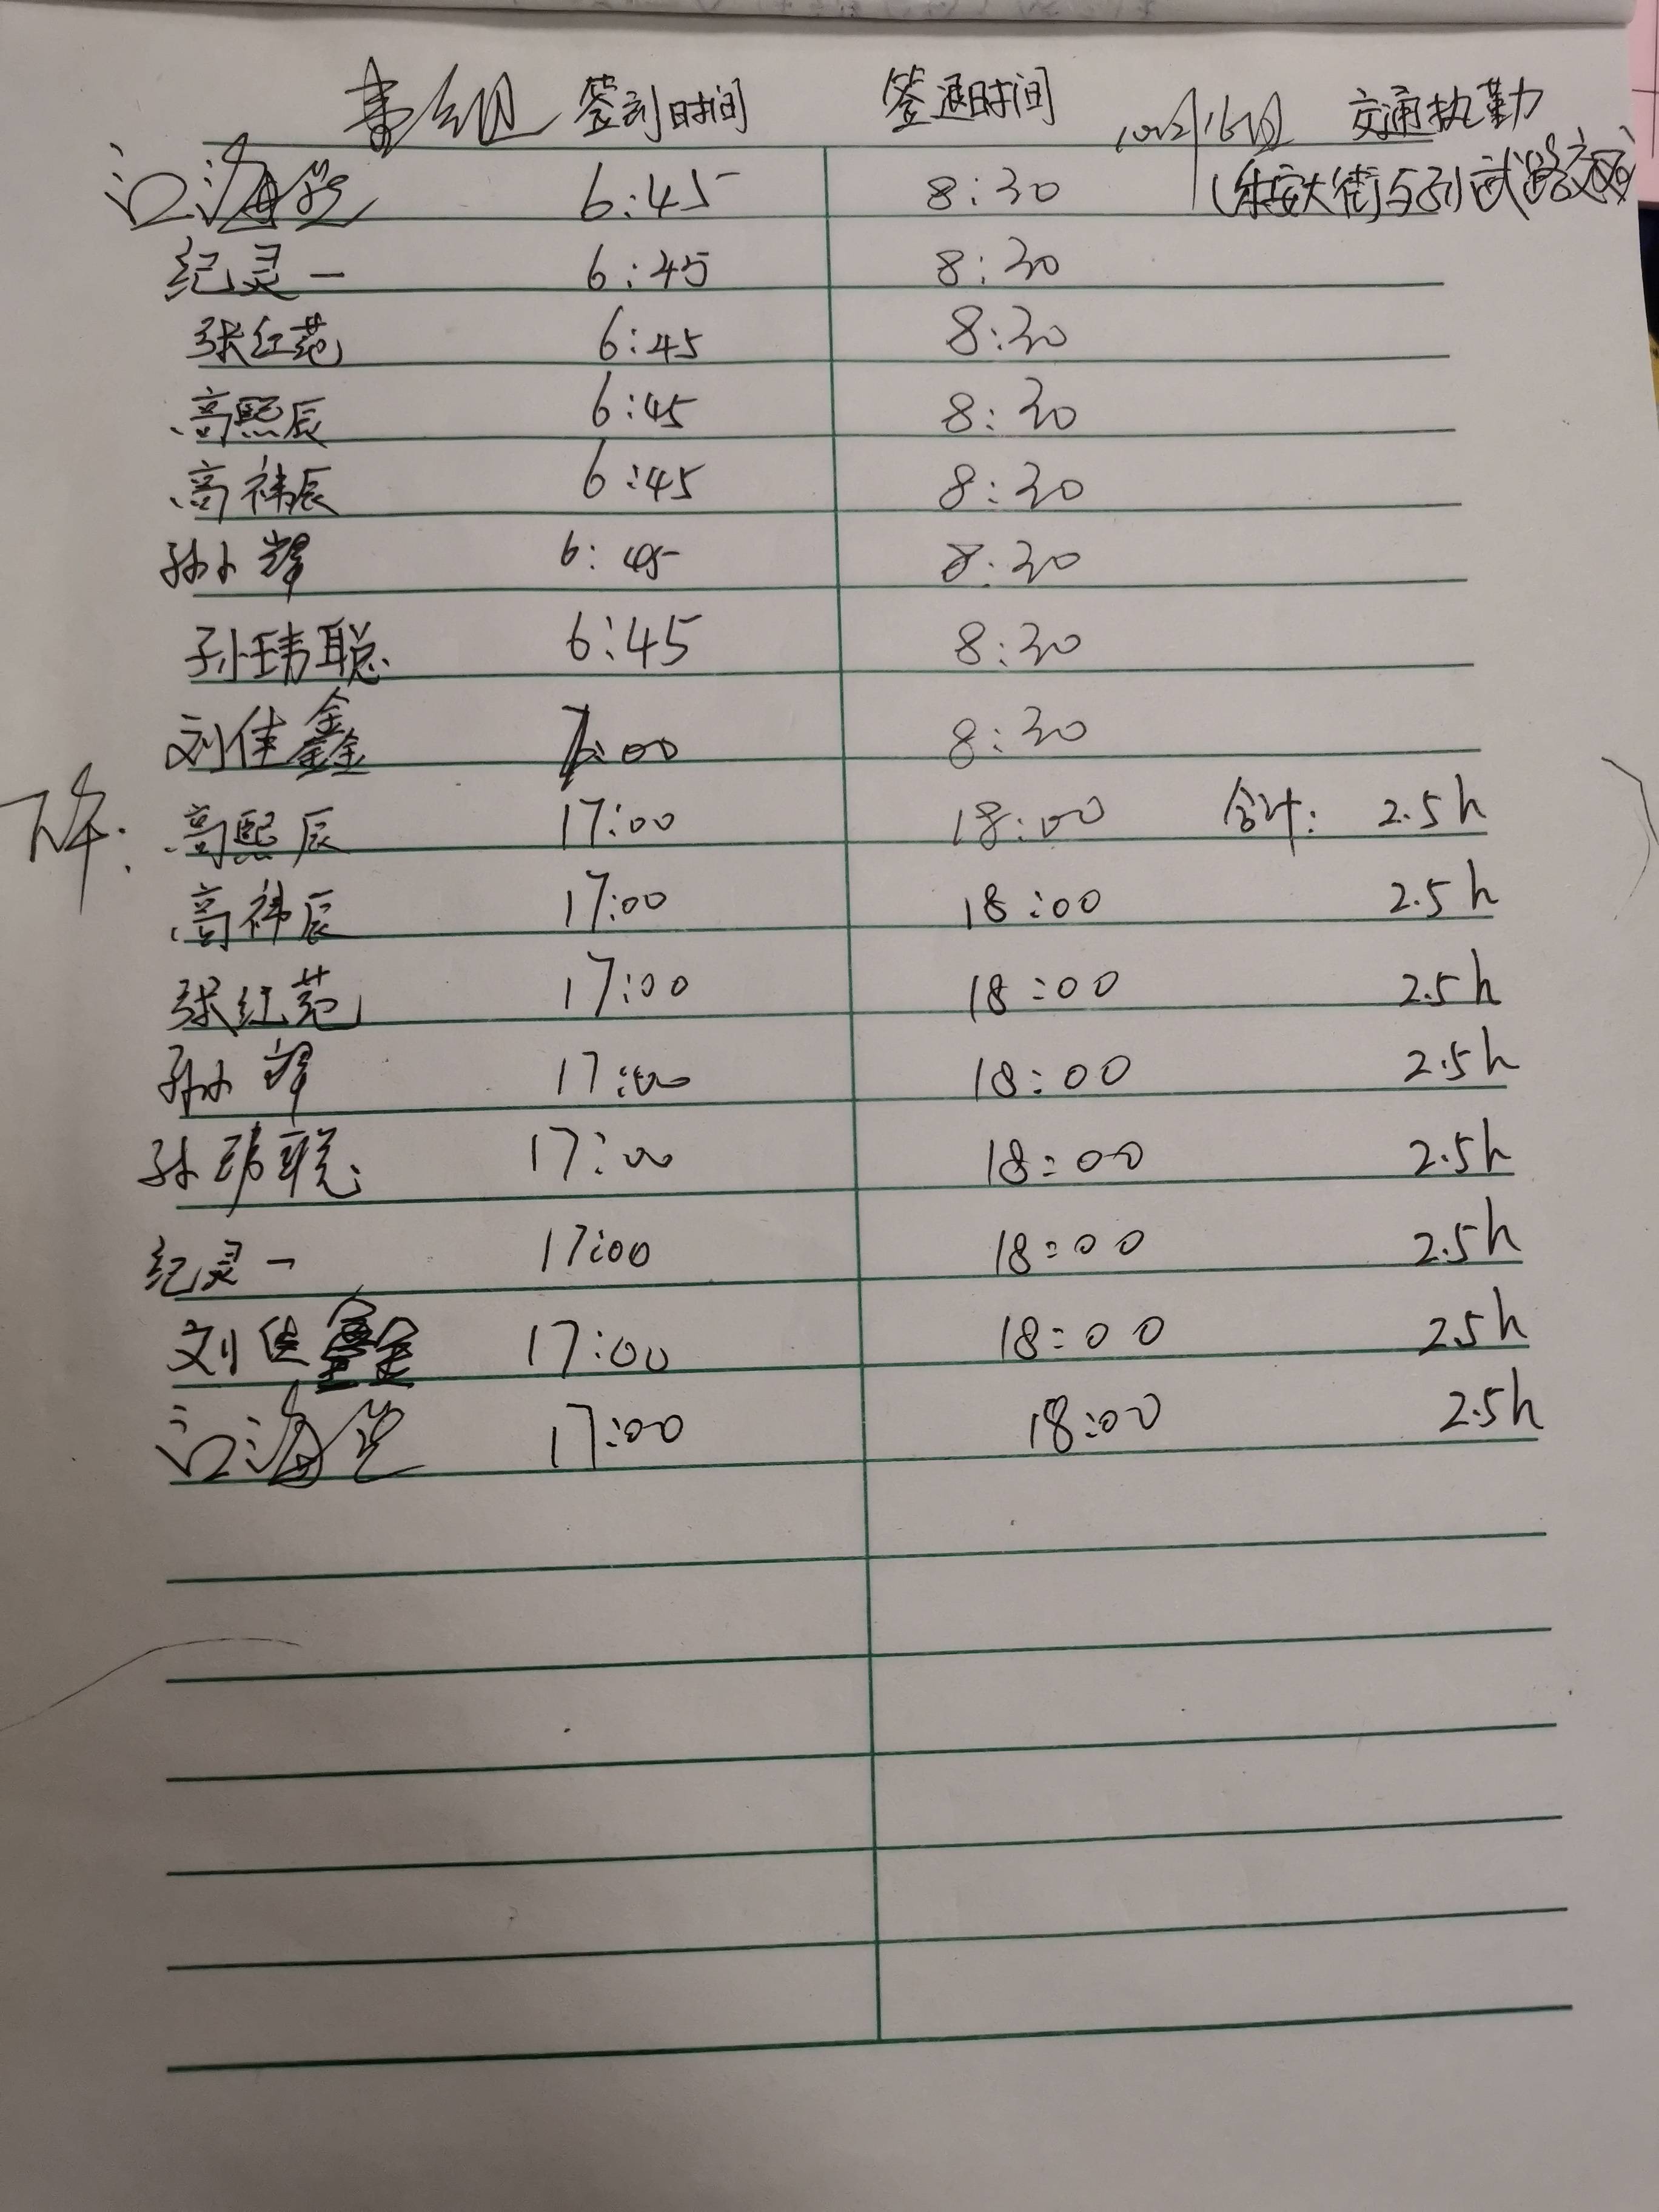 签到时间 签退时间 交通执勤
6:45 8:30 (乐安大街与孙武路交叉
纪灵一 6:45 8:30
张红苑 6:45 8:30
高熙辰 6:45 8:30
高祎辰 6:45 8:30
孙小辉 6:45 8:30
孙玮聪 6:45 8:30
刘佳鑫 8:30
下午: 高熙辰 17:00 18:00 合计: 2.5h
高祎辰 17:00 18:00 2.5h
张红苑 17:00 18:00 2.5h
孙小辉 17:00 18:00 2.5h
孙玮聪 17:00 18:00 2.5h
纪灵一 17:00 18:00 2.5h
刘佳鑫 17:00 18:00 2.5h
17:00 18:00 2.5h